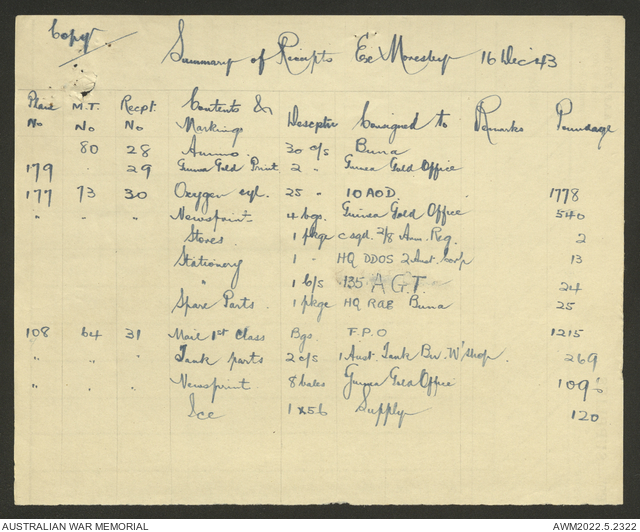 Copy
Summary of Receipts Ex Moresby 16 Dec 43
Plane No M.T. No Recpt. No Contents & Markings Descptn Consigned to Remarks Poundage
80 28 Ammo. 30 c/s Buna
179 . 29 Guinea Gold Print 2 " Guinea Gold Office
177 73 30 Oxygen cyl. 25 " 10 AOD. 1778
" " " Newsprint 4 bgs. Guinea Gold Office 540
Stores. 1 pkge c sqd. 2/8 Arm. Reg. 2
Stationery 1 " HQ DDOS 2 Aust. Corp 13
" 1 b/s 135 A.G.T. 24
Spare Parts. 1 pkge HQ RAE Buna 25
108 64 31 Mail 1st Class Bgs F.P.O 1215
" " " Tank parts 2 c/s 1 Aust. Tank W'shop. 269
" " Newsprint 8 bales Guinea Gold Office
Ice 1 x 56 Supply 120
AUSTRALIAN WAR MEMORIAL
AWM2022.5.2322